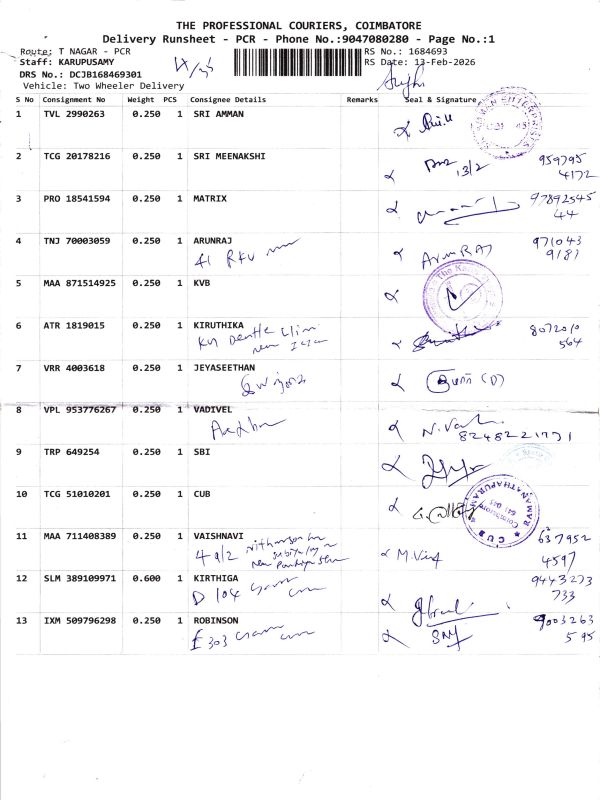 THE PROFESSIONAL COURIERS, COIMBATORE
Delivery Runsheet - PCR - Phone No.:9047080280 - Page No.:1
Route: T NAGAR - PCR
RS No.: 1684693
Staff: KARUPUSAMY
RS Date: 13-Feb-2026
DRS No.: DCJB168469301
Vehicle: Two Wheeler Delivery
S No Consignment No Weight PCS Consignee Details Remarks Seal & Signature
1 TVL 2990263 0.250 1 SRI AMMAN
2 TCG 20178216 0.250 1 SRI MEENAKSHI
13/2
959795
4172
3 PRO 18541594 0.250 1 MATRIX
97892545
44
4 TNJ 70003059 0.250 1 ARUNRAJ
41 RKV
ArunRAJ
971043
9187
5 MAA 871514925 0.250 1 KVB
6 ATR 1819015 0.250 1 KIRUTHIKA
8072010
564
7 VRR 4003618 0.250 1 JEYASEETHAN
(D)
8 VPL 953776267 0.250 1 VADIVEL
8248221771
9 TRP 649254 0.250 1 SBI
10 TCG 51010201 0.250 1 CUB
CUB
RAMANATHAPURAM
11 MAA 711408389 0.250 1 VAISHNAVI
637952
4597
12 SLM 389109971 0.600 1 KIRTHIGA
D 104
9443273
733
13 IXM 509796298 0.250 1 ROBINSON
E 303
9003263
595